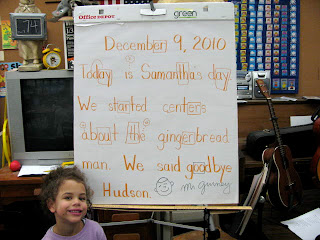 Office DEPOT
green
December 9, 2010
Today is Samantha's day.
We started centers
about the gingerbread
man. We said goodbye
Hudson.